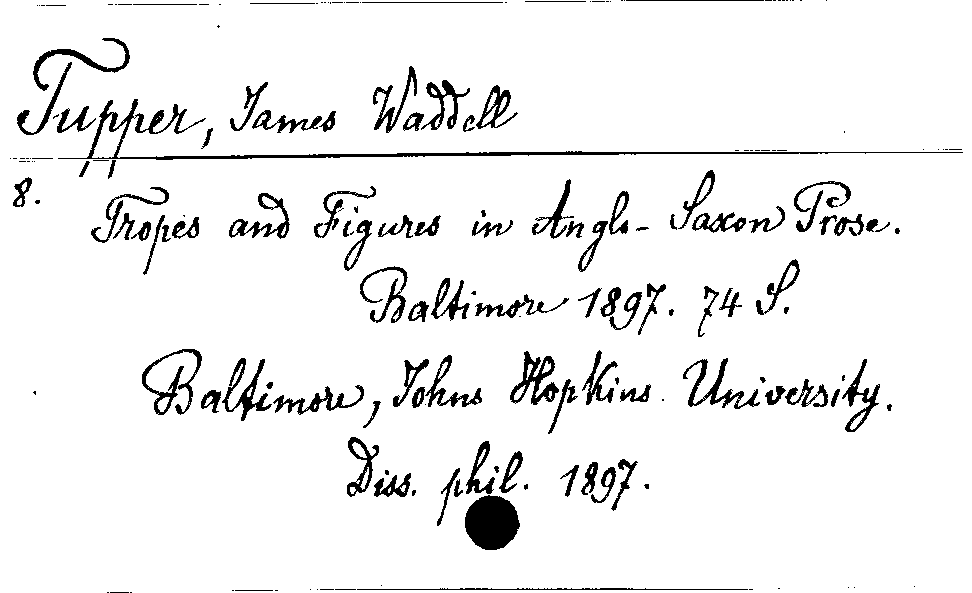 Tupper, James Waddell
8.
Tropes and Figures in Anglo-Saxon Prose.
Baltimore 1897. 74 S.
Baltimore, Johns Hopkins University.
Diss. phil. 1897.